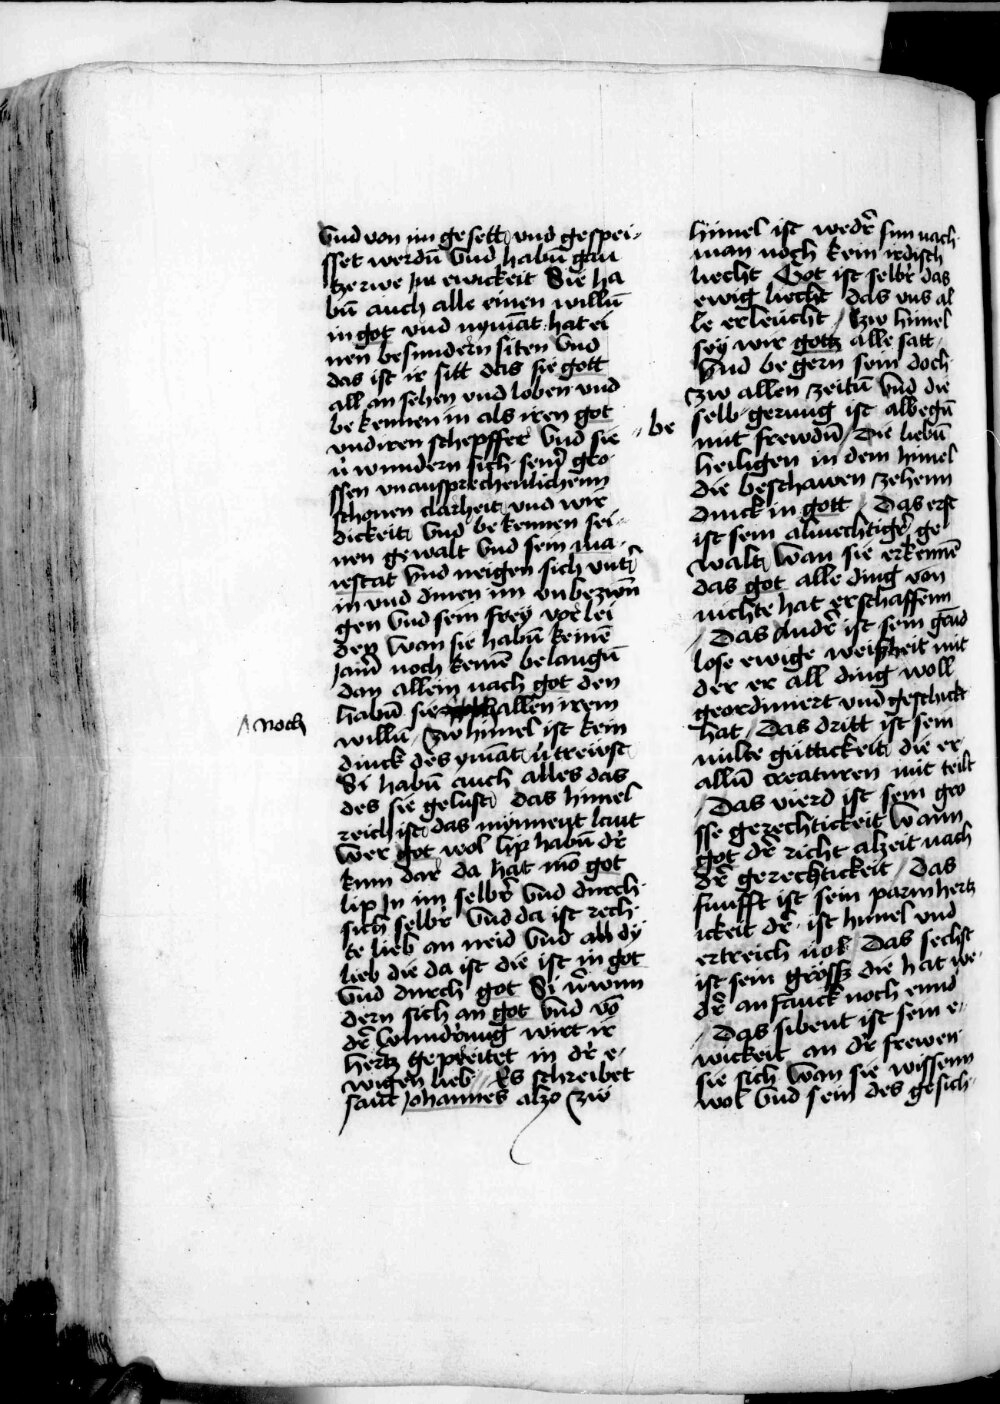 vnd von im gesett vnd gespei-
sset werdn̄ vnd habn̄ gan
tze rwe Jm ewickeit Sie ha
bn̄ auch alle einen willn̄
in got vnd nymāt hat ei
nen besundern siten vnd
das ist ir sitt das sie gott
all an sehen vnd loben vnd
be kennen in als iren got
vnd iren schepffer vnd sie
v̓ wundern sich seīr gro-
ssen vnaussprechenlichenn
schonen clarheit vnd wir
dickeit vnd be kennen sei-
nen gewalt vnd sein ma-
iestat vnd neigen sich vnt̓
in vnd dinen im vnbezwn̄
gen vnd sein frey vor lei
den wan sie habn̄ keinē
Jamer noch keinē belangn̄
dan allein nach got den
habn̄ sie allen irem
willn̄ / zw himel ist kein
dinck des ymāt v̓treust
Si habn̄ auch alles das
des sie gelust das himel
reich ist das mynnent lant
wer got wol lip habn̄ dr̓
kum dar da hat mō got
lip Jn im selbr̓ vnd durch
sich selbr̓ vnd da ist rech
te lieb an neid vnd all dy
lieb die da ist die ist in got
vnd durch got Si v̓wun
dern sich an got vnd vō
dr̓ wundrung wirt ir
hertz gepreitet in dr̓ e-
wigen lieb // Es schreibet
sant Johannes alzo zw
noch
be
himel ist wedr̓ sun nach
man noch kein irdisch
liecht Got ist selbr̓ das
ewig liecht das vns al
le erleucht / zw himel
sey wir gotz alle satt
vnd be gern sein doch
zw allen zeitn̄ vnd die
selb gerung ist albegn̄
mit frewdn̄ / Die liebn̄
heiligen in dem himel
die beschawen zehenn
dinck in gott / Das erst
ist sein almechtigr̓ ge
walt wan sie erkennē
das got alle ding von
nichte hat erschaffenn
/ Das Andr̓ ist sein grūd
lose ewige weisheit mit
der er all ding woll
geordinert vnd geschickt
hat / Das dritt ist sein
milte gūttickeit die er
alln̄ creaturen mit teilt
/ Das vierd ist sein gro
sse gerechtickeit wann
got dr̓ richt alzeit nach
dr̓ gerechtickeit / Das
funfft ist sein parmhertz
ickeit dr̓ ist himel vnd
ertreich uol / Das sechst
ist sein gröss die hat we-
dr̓ anfanck noch ennd
/ Das sibent ist sein e-
wickeit an dr̓ frewen
sie sich wan sie wissenn
wol vnd sein des gesich-